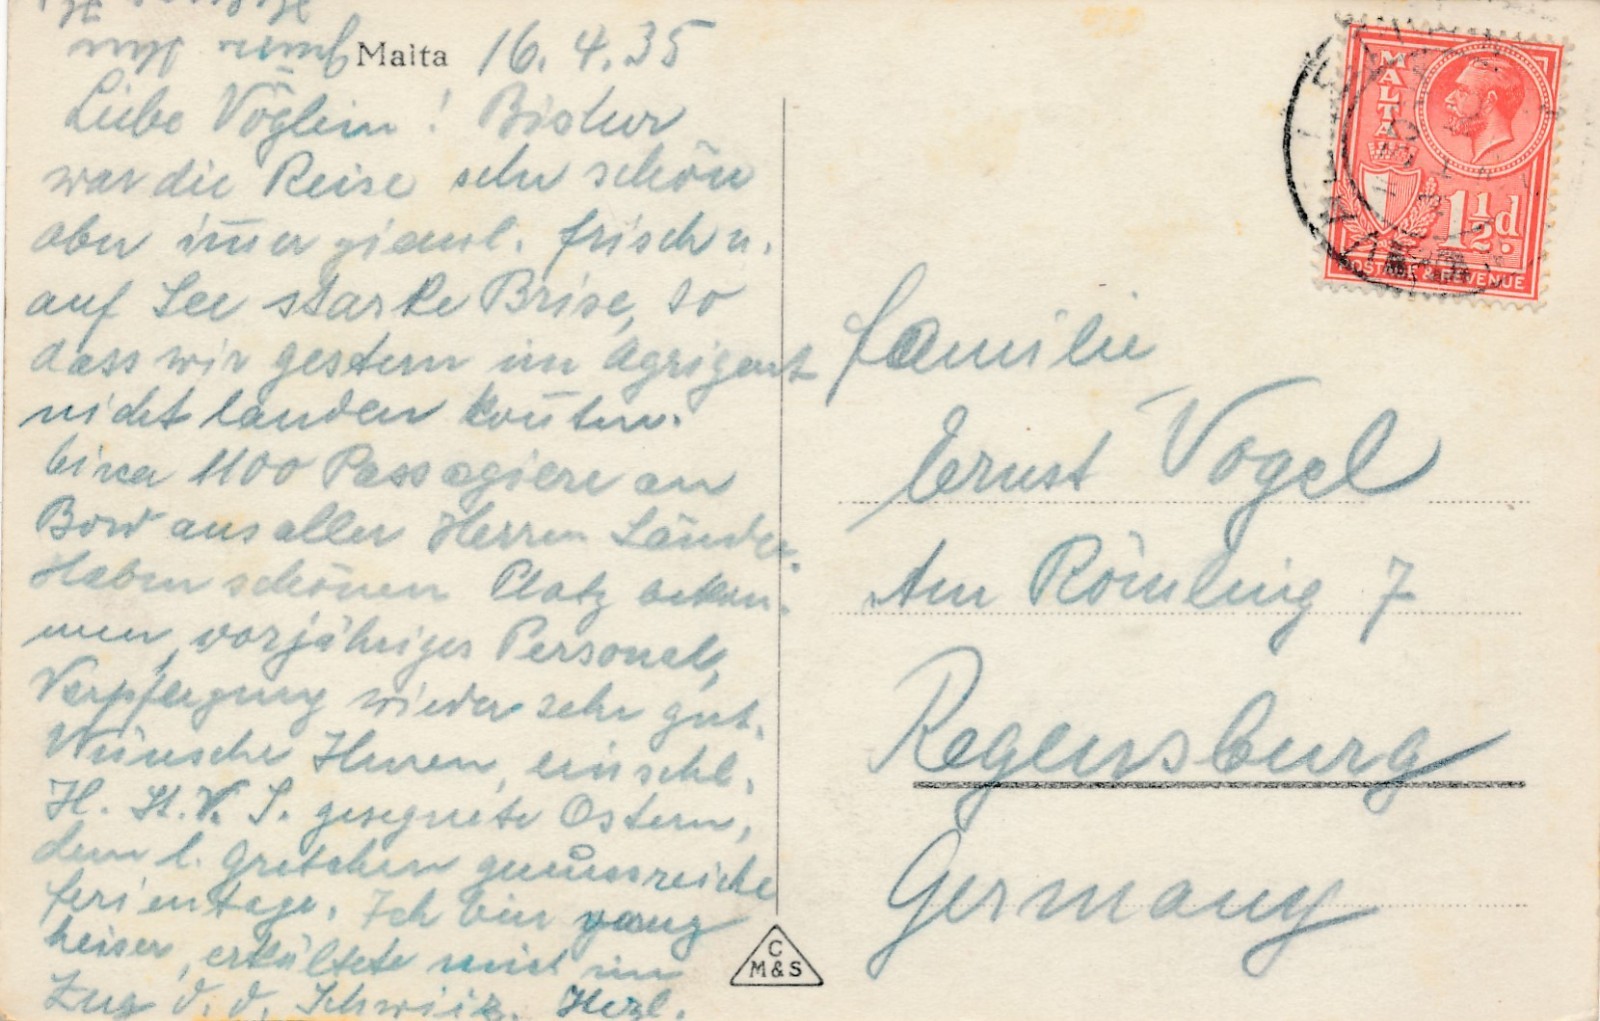 Malta 16.4.35
Liebe Vöglein! Bisher
war die Reise sehr schön
aber im̅er zieml. frisch u.
auf See starke Brise, so
dass wir gestern in Agrigent
nicht landen kon̅ten.
Circa 1100 Passagiere an
Bord aus aller Herren Länder.
Haben schönen Platz bekom-
men, vorjähriges Personal,
Verpflegung wieder sehr gut.
Wünsche Ihnen, einschl.
H. St.V. S. gesegnete Ostern,
dem l. Gretchen genussreiche
Ferientage. Ich bin ganz
heiser, erkältete mich im
Zug d. d. Schweiz. Herzl.
MALTA
1½d.
POSTAGE & REVENUE
Familie
Ernst Vogel
Am Römling 7
Regensburg
Germany
C
M&S